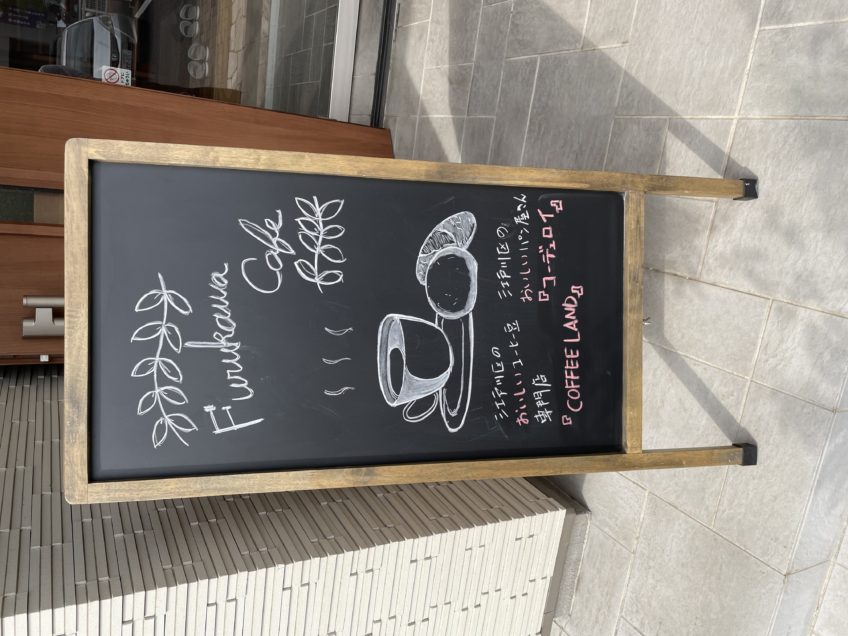 Furukawa
Cafe
江戸川区の
おいしいコーヒー豆
専門店
『COFFEE LAND』
江戸川区の
おいしいパン屋さん
『コーデュロイ』